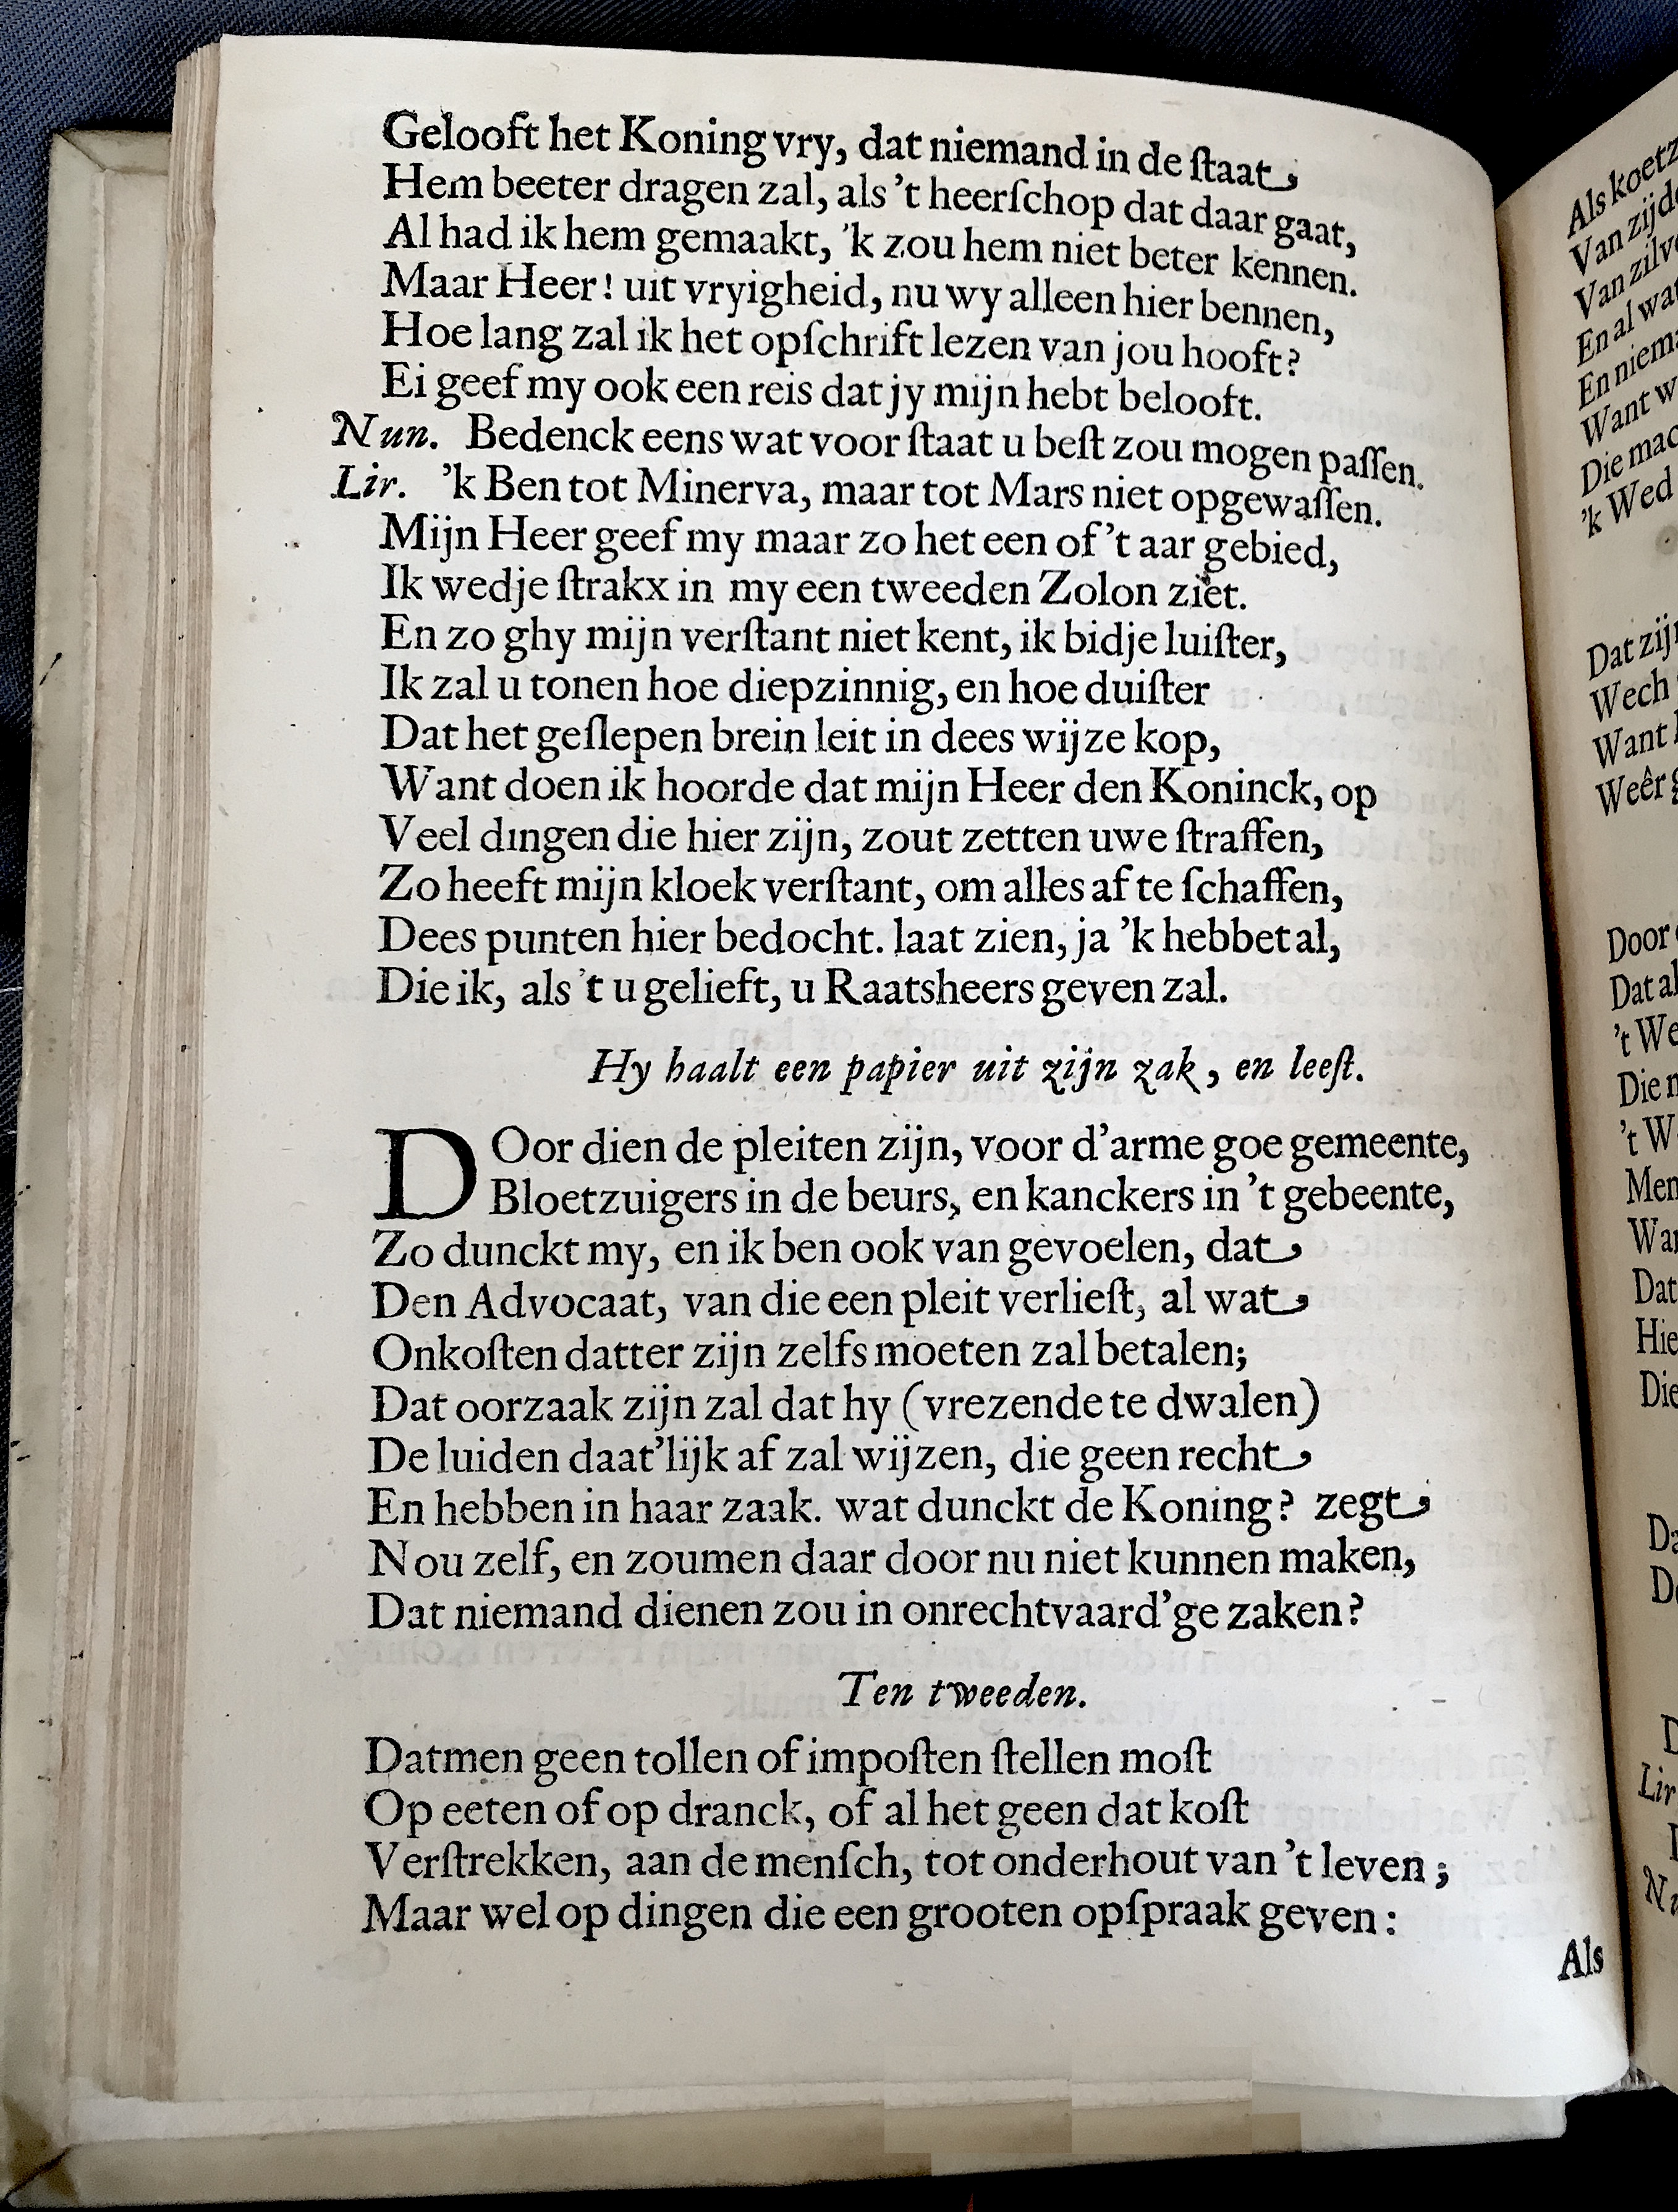 Gelooft het Koning vry, dat niemand in de ſtaat
Hem beeter dragen zal, als 't heerſchop dat daar gaat,
Al had ik hem gemaakt, 'k zou hem niet beter kennen.
Maar Heer! uit vryigheid, nu wy alleen hier bennen,
Hoe lang zal ik het opſchrift lezen van jou hooft?
Ei geef my ook een reis dat jy mijn hebt belooft.
Nun. Bedenck eens wat voor ſtaat u beſt zou mogen paſſen.
Lir. 'k Ben tot Minerva, maar tot Mars niet opgewaſſen.
Mijn Heer geef my maar zo het een of 't aar gebied,
Ik wedje ſtrakx in my een tweeden Zolon ziet.
En zo ghy mijn verſtant niet kent, ik bidje luiſter,
Ik zal u tonen hoe diepzinnig, en hoe duiſter
Dat het geſlepen brein leit in dees wijze kop,
Want doen ik hoorde dat mijn Heer den Koninck, op
Veel dingen die hier zijn, zout zetten uwe ſtraffen,
Zo heeft mijn kloek verſtant, om alles af te ſchaffen,
Dees punten hier bedocht. laat zien, ja 'k hebbet al,
Die ik, als 't u gelieft, u Raatsheers geven zal.
Hy haalt een papier uit zijn zak, en leeſt.
DOor dien de pleiten zijn, voor d'arme goe gemeente,
Bloetzuigers in de beurs, en kanckers in 't gebeente,
Zo dunckt my, en ik ben ook van gevoelen, dat
Den Advocaat, van die een pleit verlieſt, al wat
Onkoſten datter zijn zelfs moeten zal betalen;
Dat oorzaak zijn zal dat hy (vrezende te dwalen)
De luiden daat'lijk af zal wijzen, die geen recht
En hebben in haar zaak. wat dunckt de Koning? zegt
Nou zelf, en zoumen daar door nu niet kunnen maken,
Dat niemand dienen zou in onrechtvaard'ge zaken?
Ten tweeden.
Datmen geen tollen of impoſten ſtellen moſt
Op eeten of op dranck, of al het geen dat koſt
Verſtrekken, aan de menſch, tot onderhout van 't leven;
Maar wel op dingen die een grooten opſpraak geven:
Als
Als koetz
Van zijd
Van zilv
En al wat
En niem
Want w
Die mac
'k Wed
Dat zij
Wech
Want
Weêr
Door
Dat al
't We
Die
't W
Men
Wa
Dat
Hie
Die
Da
D
D
Lir
N